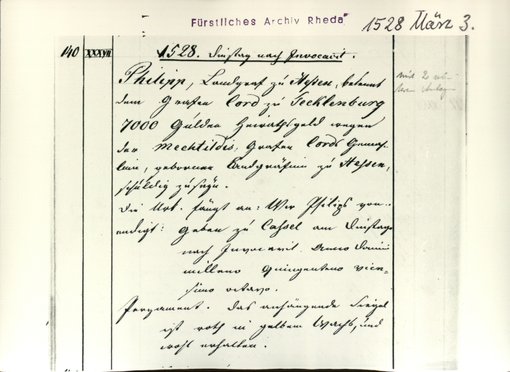 Fürstliches Archiv Rheda
1528 März 3.
140 XXXVII
1528. Dinstag nach Invocavit.
Philipp, Landgraf zu Hessen, bekennt
dem Grafen Cord zu Tecklenburg
7000 Gulden Heirathsgeld wegen
der Mechtildis, Grafen Cords Gemah-
lein, geborener Landgräfin zu Hessen,
schuldig zu seyn.
Die Urk. fängt an: Wir Philips von
endigt: Geben zu Cassel am Dinstage
nach Invocavit. Anno Domini
milleno quingenteno vice-
simo octavo.
Pergament. Das anhängende Siegel
ist roth in gelbem Wachs, und
wohl erhalten.